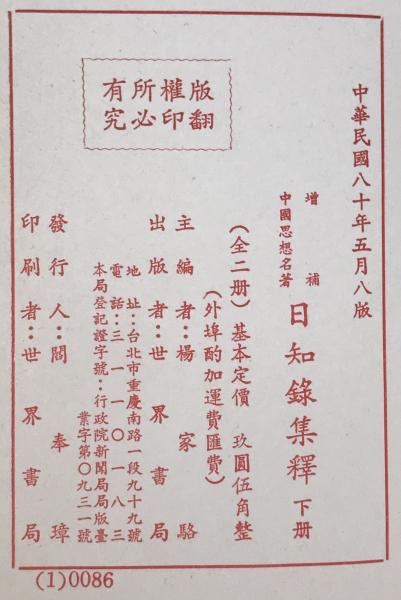 中華民國八十年五月八版
增補
中國思想名著
日知錄集釋 下册
(全二册) 基本定價 玖圓伍角整
(外埠酌加運費匯費)
主編者：楊家駱
出版者：世界書局
地址：台北市重慶南路一段九十九號
電話：三一一〇一八三
本局登記證字號：行政院新聞局局版臺
業字第〇九三一號
發行人：閻奉璋
印刷者：世界書局
版權所有
翻印必究
(1)0086